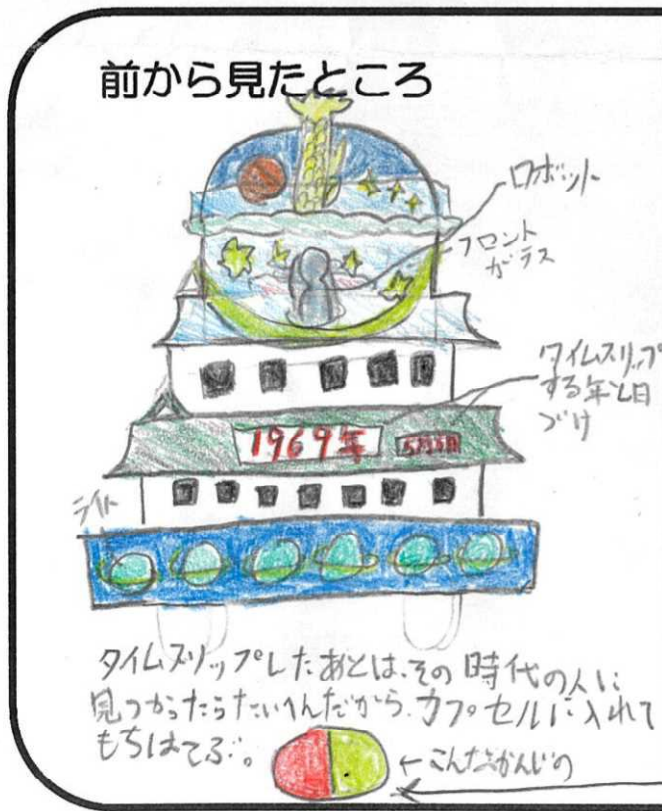 前から見たところ
ロボット
フロント
ガラス
タイムスリップ
する年と日
づけ
1969年 5月5日
ライト
タイムスリップしたあとは、その時代の人に
見つかったらたいへんだから、カプセルに入れて
もちはこぶ。
←こんなかんじの